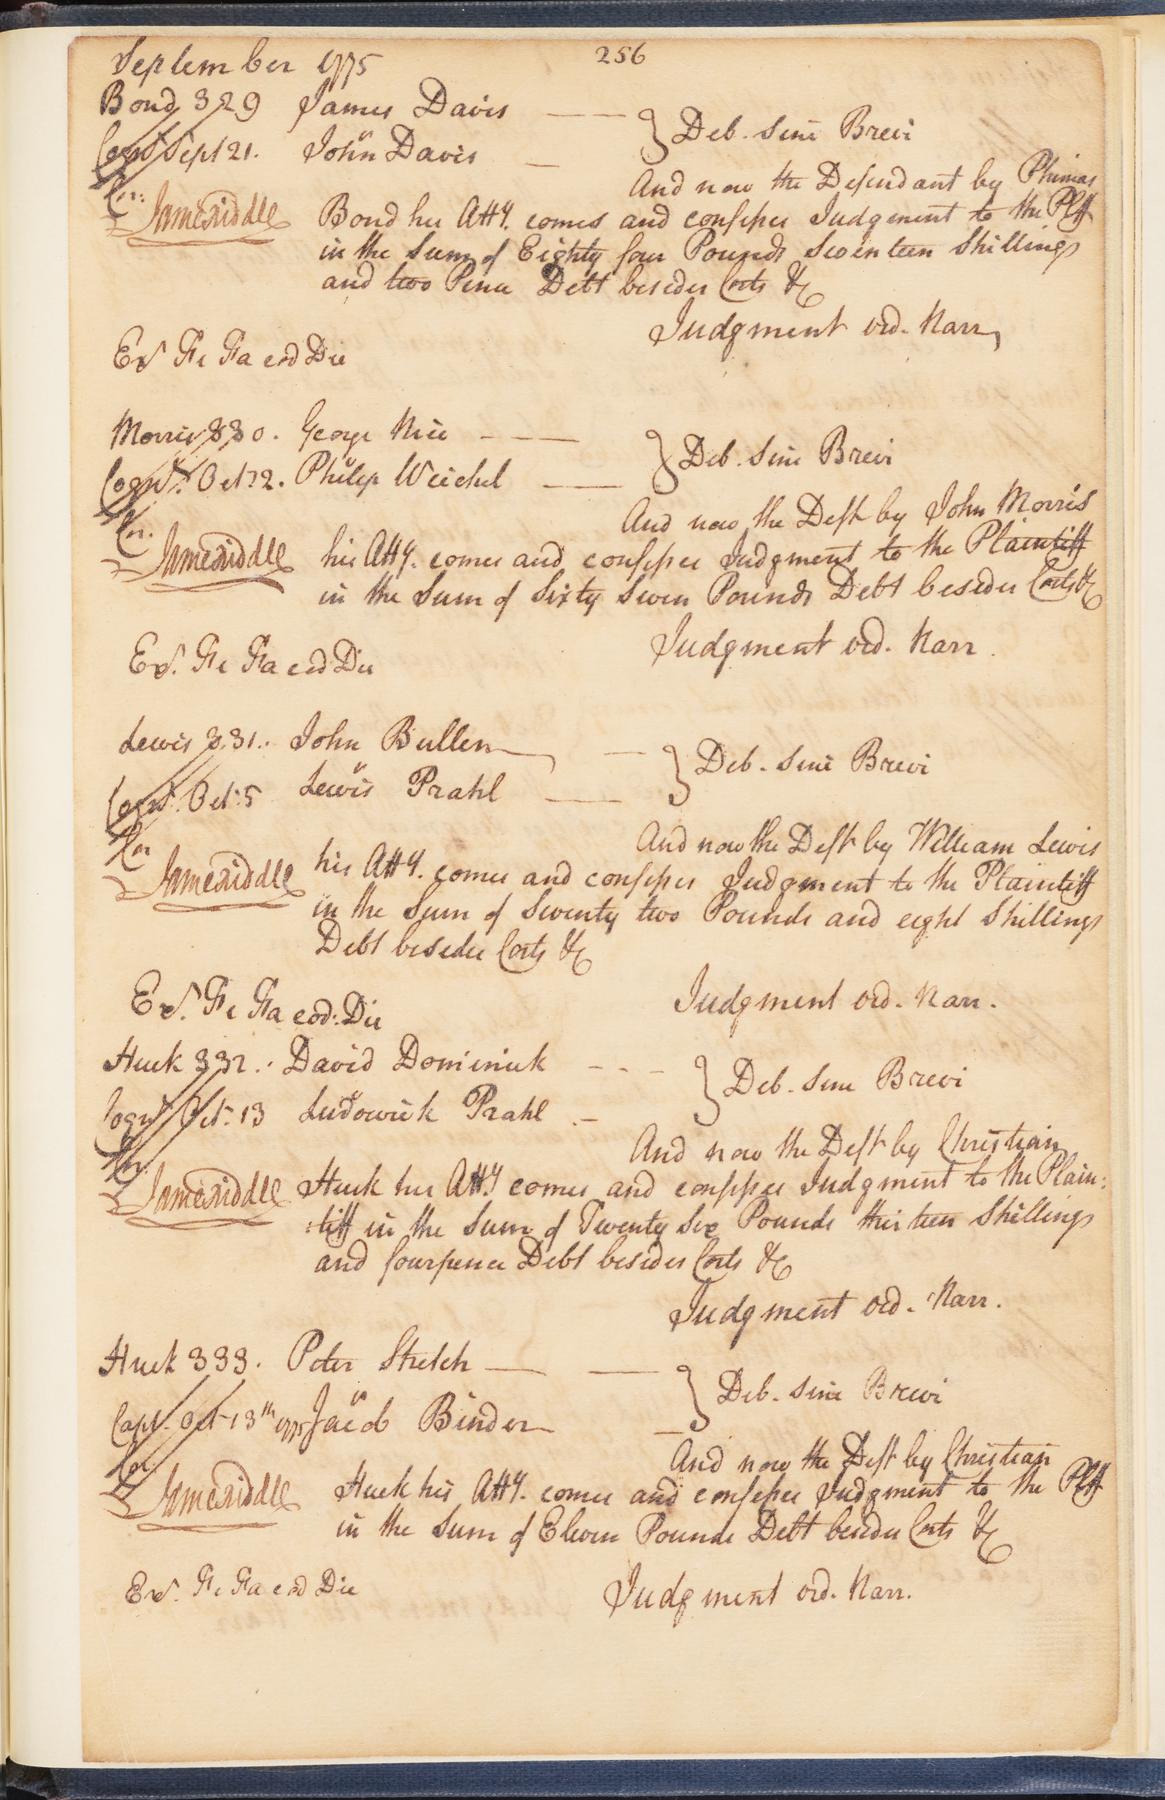 September 1775
256
Bond 329 James Davis
Deb. Sine Brevi
Cognt Sept 21. John Davis
And now the Defendant by Phineas
Cor. James Biddle Bond his Atty. comes and confesses Judgment to the Plff
in the Sum of Eighty four Pounds Seventeen Shillings
and two Pence Debt besides Costs &c
Judgment ord. Narr
Ex. Fi Fa eod Die
Morris 330. George Nice
Deb. Sine Brevi
Cognt. Oct. 2. Philip Weichel
And now the Deft by John Morris
Cor. James Biddle his Atty. comes and confesses Judgment to the Plaintiff
in the Sum of Sixty Seven Pounds Debt besides Costs &c
Judgment ord. Narr.
Ex. Fi Fa eod Die
Lewis 331. John Bullen
Deb. Sine Brevi
Cognt. Oct. 5 Lewis Prahl
And now the Deft by William Lewis
Cor James Biddle his Atty. comes and confesses Judgment to the Plaintiff
in the Sum of Seventy two Pounds and eight Shillings
Debt besides Costs &c
Judgment ord. Narr.
Ex. Fi Fa eod: Die
Huck 332. David Dominick
Deb. Sine Brevi
Cognt Oct. 13 Ludowick Prahl
And now the Deft by Christian
Cor. James Biddle Huck his Atty comes and confesses Judgment to the Plain:
:tiff in the Sum of Twenty Six Pounds thirteen Shillings
and fourpence Debt besides Costs &c
Judgment ord. Narr.
Huck 333. Peter Stretch
Deb. Sine Brevi
Oct 13th 1775 Jacob Binder
And now the Deft by Christian
Cor. James Biddle Huck his Atty. comes and confesses Judgment to the Plff
in the Sum of Eleven Pounds Debt besides Costs &c
Judgment ord. Narr.
Ex. Fi Fa eod Die